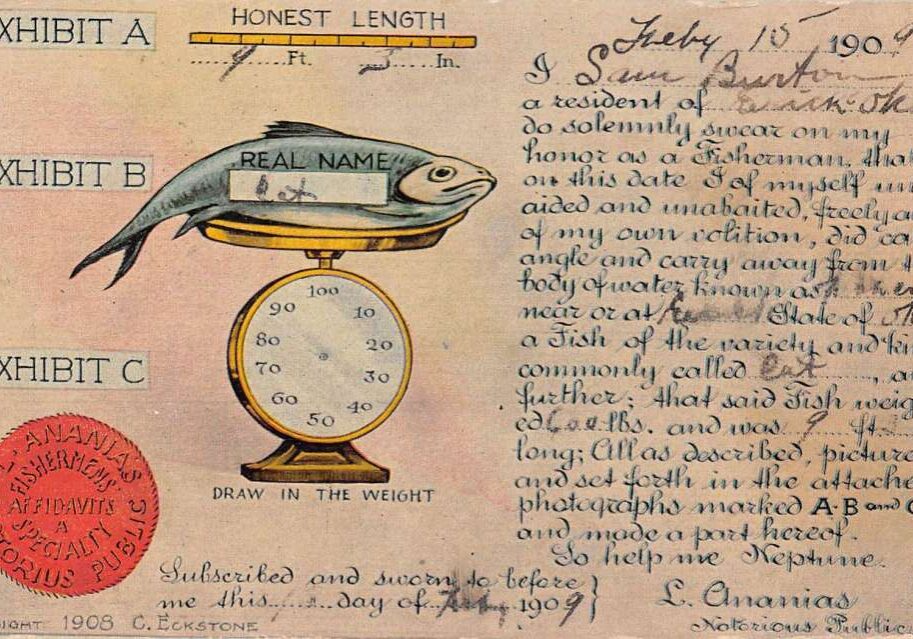 XHIBIT A
HONEST LENGTH
9 Ft. 3 In.
XHIBIT B
REAL NAME
Cat
100
90 10
80 20
70 30
60 40
50
XHIBIT C
DRAW IN THE WEIGHT
L. ANANIAS
FISHERMENS
AFFIDAVITS
A
SPECIALTY
TORIUS PUBLIC
Feby 15 1909
I Sam Burton
a resident of
do solemnly swear on my
honor as a Fisherman, that
on this date I of myself un
aided and unabaited, freely a
of my own volition, did ca
angle and carry away from t
body of water known as
near or at State of Ok
a Fish of the variety and ki
commonly called Cat, a
further; that said Fish weig
ed lbs. and was 9 ft.
long; All as described, picture
and set forth in the attache
photographs marked A-B and C
and made a part hereof.
So help me Neptune.
Subscribed and sworn to before
me this day of Feby 1909
L. Ananias
Notorious Public
IGHT 1908 C. ECKSTONE